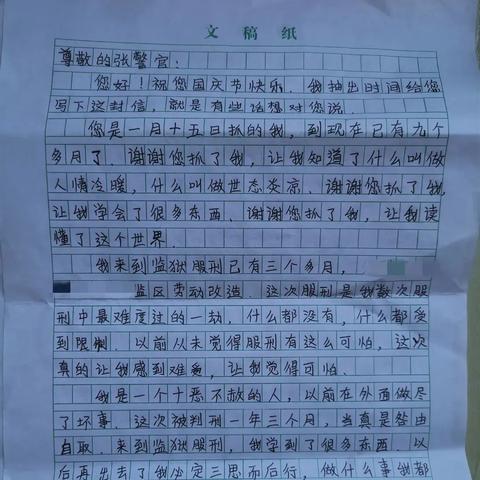 文稿纸
尊敬的张警官：
您好！祝您国庆节快乐。我抽出时间给您
写下这封信，就是有些话想对您说。
您是一月十五日抓的我，到现在已有九个
多月了、谢谢您抓了我，让我知道了什么叫做
人情冷暖，什么叫做世态炎凉、谢谢您抓了我，
让我学会了很多东西、谢谢您抓了我，让我读
懂了这个世界.
我来到监狱服刑已有三个多月，
监区劳动改造、这次服刑是我数次服
刑中最难度过的一劫，什么都没有，什么都受
到限制、以前从未觉得服刑有这么可怕，这次
真的让我感到难受，让我觉得可怕.
我是一个十恶不赦的人，以前在外面做尽
了坏事、这次被判刑一年三个月，当真是咎由
自取、来到监狱服刑，我学到了很多东西、以
后再出去了我必定三思而后行，做什么事我都